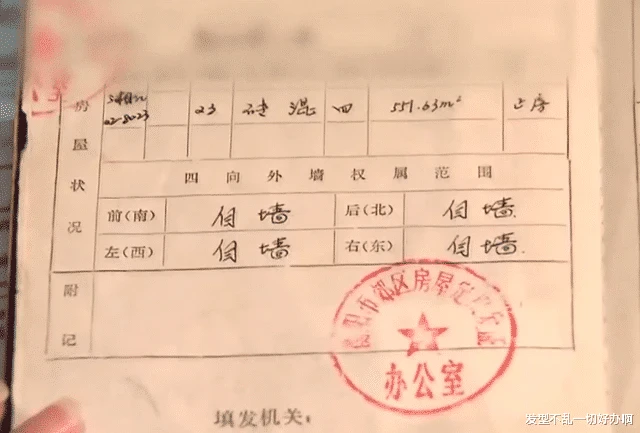 房屋状况
23 砖混 四 551.63m² 正房
四向外墙权属范围
前(南) 自墙 后(北) 自墙
左(西) 自墙 右(东) 自墙
附记
办公室
填发机关：
发型不乱一切好办啊